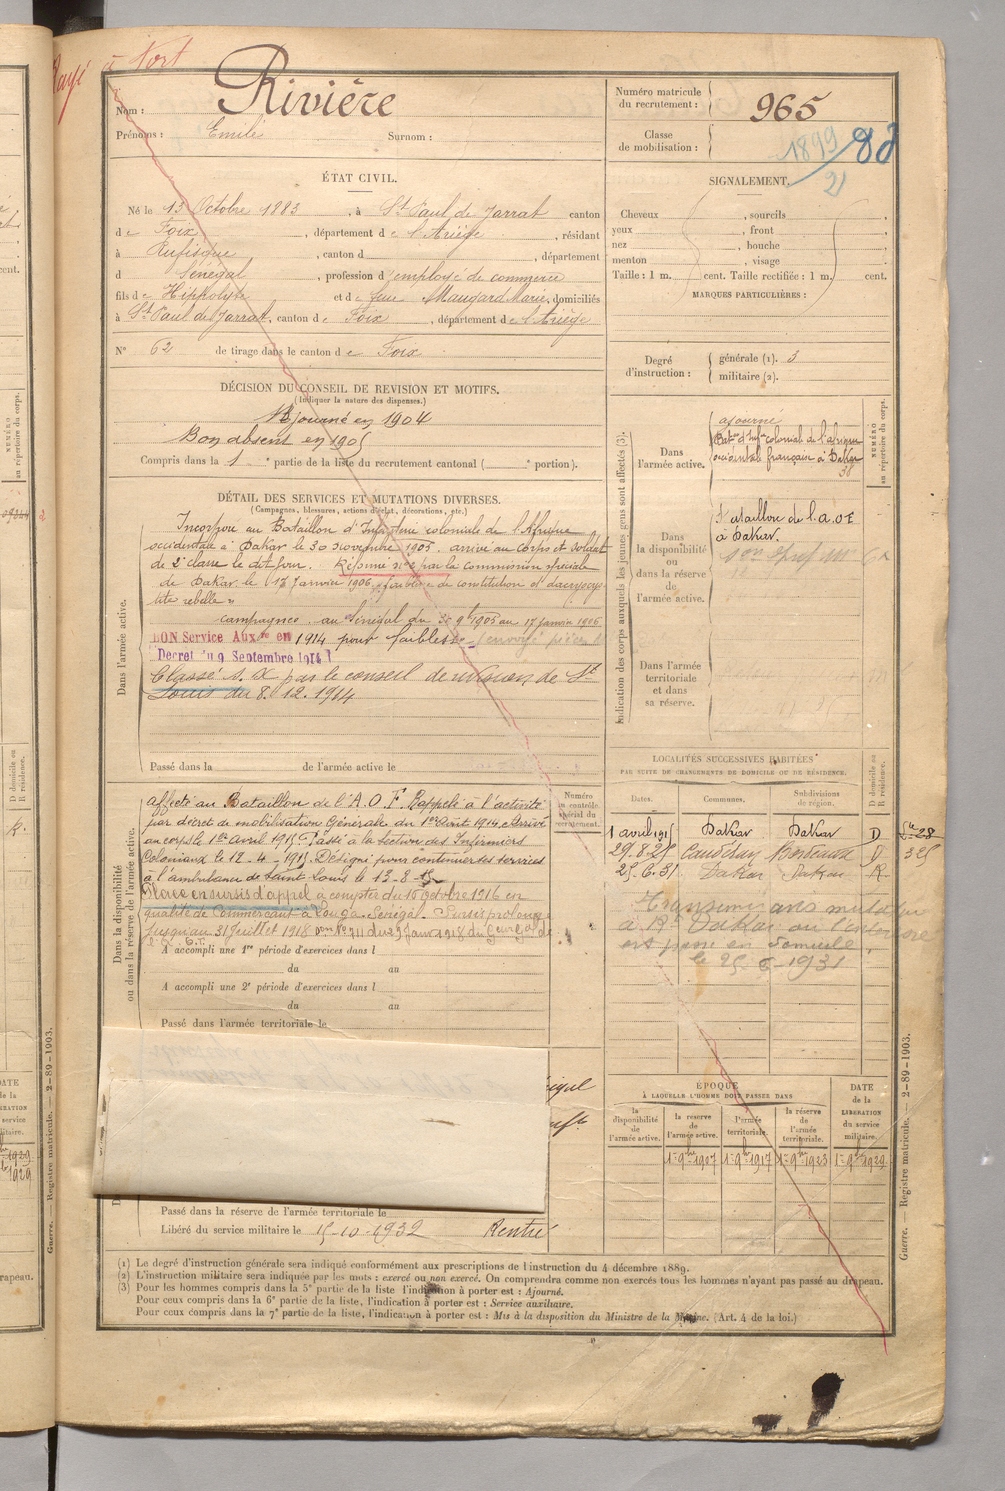 Rayé à tort
Nom : Rivière
Prénoms : Emile Surnom :
Numéro matricule du recrutement : 965
Classe de mobilisation : 1899
21
ÉTAT CIVIL.
Né le 13 Octobre 1883, à St Paul de Jarrat canton
de Foix, département de l'Ariège, résidant
à Rufisque, canton d , département
d Sénégal, profession d'employé de commerce
fils de Hippolyte et de feue Maugard Marie, domiciliés
à St Paul de Jarrat, canton de Foix, département de l'Ariège
N° 62 de tirage dans le canton de Foix
SIGNALEMENT.
Cheveux , sourcils ,
yeux , front ,
nez , bouche ,
menton , visage .
Taille : 1 m. cent. Taille rectifiée : 1 m. cent.
MARQUES PARTICULIÈRES :
Degré d'instruction : générale (1). 3
militaire (2).
DÉCISION DU CONSEIL DE REVISION ET MOTIFS.
(Indiquer la nature des dispenses.)
Ajourné en 1904
Bon absent en 1905
Compris dans la 1 e partie de la liste du recrutement cantonal ( e portion).
DÉTAIL DES SERVICES ET MUTATIONS DIVERSES.
(Campagnes, blessures, actions d'éclat, décorations, etc.)
Dans l'armée active.
Incorporé au Bataillon d'Infanterie coloniale de l'Afrique
occidentale à Dakar le 30 novembre 1905. arrivé au corps et soldat
de 2e classe le dit jour. Réformé n° 2 par la commission spéciale
de Dakar le 17 Janvier 1906 faiblesse de constitution et dacryocys
tite rebelle »
campagne au Sénégal du 30 9bre 1905 au 17 janvier 1906
BON Service Auxre en 1914 pour faiblesse
Décret du 9 Septembre 1914
Classé S. X par le conseil de révision de St
Louis du 8.12.1914
Passé dans la de l'armée active le
Indication des corps auxquels les jeunes gens sont affectés (3).
NUMÉRO au répertoire du corps.
Dans l'armée active.
ajourné
Baton d'Infrie coloniale de l'afrique
occidentale française à Dakar
38
Dans la disponibilité ou dans la réserve de l'armée active.
Bataillon de l'A.O.F
à Dakar.
Dans l'armée territoriale et dans sa réserve.
Dans la disponibilité ou dans la réserve de l'armée active.
Numéro au contrôle spécial du recrutement.
affecté au Bataillon de l'A.O.F. Rappelé à l'activité
par décret de mobilisation Générale du 1er Août 1914. Arrivé
au corps le 1er avril 1915 Passé à la section des Infirmiers
Coloniaux le 12-4-1915. Désigné pour continuer ses services
à l'ambulance de Saint Louis le 13-8-15
Placé en sursis d'appel à compter du 15 octobre 1916 en
qualité de Commerçant à Louga-Sénégal. Sursis prolongé
jusqu'au 31 Juillet 1918
A accompli une 1re période d'exercices dans l
du au
A accompli une 2e période d'exercices dans l
du au
Passé dans l'armée territoriale le
Passé dans la réserve de l'armée territoriale le
Libéré du service militaire le 15-10-1932 Rentré
LOCALITÉS SUCCESSIVES HABITÉES
PAR SUITE DE CHANGEMENTS DE DOMICILE OU DE RÉSIDENCE.
Dates. Communes. Subdivisions de région. D domicile ou R résidence.
1 avril 1915 Dakar Dakar D
29.8.25 Caudéran Bordeaux D 325
25.6.31 Dakar Dakar R
à Dakar
est passé en domicile
le 25-6-1931
ÉPOQUE
À LAQUELLE L'HOMME DOIT PASSER DANS
la disponibilité de l'armée active. la réserve de l'armée active. l'armée territoriale. la réserve de l'armée territoriale. DATE de la LIBÉRATION du service militaire.
1er 9bre 1907 1er 9bre 1917 1er 9bre 1923 1er 9bre 1929
(1) Le degré d'instruction générale sera indiqué conformément aux prescriptions de l'instruction du 4 décembre 1889.
(2) L'instruction militaire sera indiquée par les mots : exercé ou non exercé. On comprendra comme non exercés tous les hommes n'ayant pas passé au drapeau.
(3) Pour les hommes compris dans la 5e partie de la liste l'indication à porter est : Ajourné.
Pour ceux compris dans la 6e partie de la liste, l'indication à porter est : Service auxiliaire.
Pour ceux compris dans la 7e partie de la liste, l'indication à porter est : Mis à la disposition du Ministre de la Marine. (Art. 4 de la loi.)
Guerre. — Registre matricule. — 2-89-1903.
Guerre. — Registre matricule. — 2-89-1903.